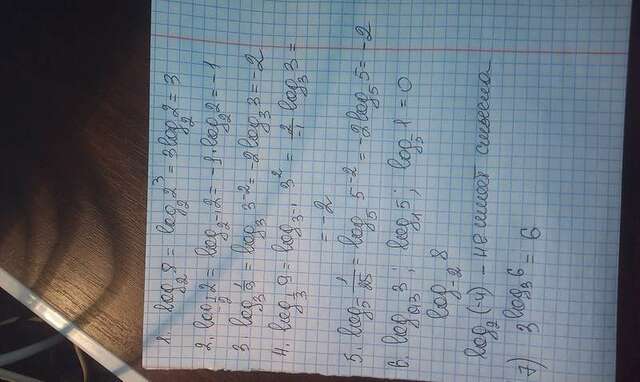 1. log₂9 = log₂2³ = 3log₂2 = 3
2. log_½ 2 = log_2⁻¹ 2 = -1·log₂2 = -1
3. log₃ 1/9 = log₃3⁻² = -2log₃3 = -2
4. log_⅓ 9 = log_3⁻¹ 3² = 2/-1 log₃3 =
= -2
5. log₅ 1/25 = log₅5⁻² = -2log₅5 = -2
6. log₀,₃3; log₁5; log₅1 = 0
log₋₂8
log₂(-4) - не имеют смысла
7) 3^log₃6 = 6